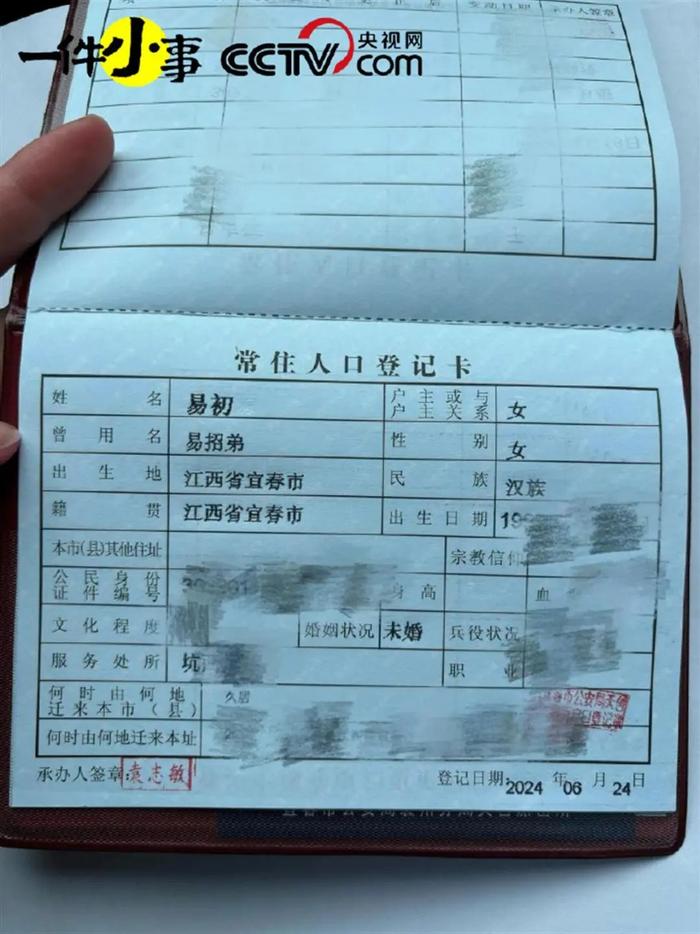 一件小事 CCTV.com 央视网
变动日期 承办人签章
常住人口登记卡
姓名 易初 户主或与户主关系 女
曾用名 易招弟 性别 女
出生地 江西省宜春市 民族 汉族
籍贯 江西省宜春市 出生日期 19
本市(县)其他住址 宗教信仰
公民身份证件编号 身高 血
文化程度 婚姻状况 未婚 兵役状况
服务处所 坑 职业
何时由何地迁来本市(县) 久居
何时由何地迁来本址
承办人签章: 袁志敏 登记日期: 2024 年 06 月 24 日